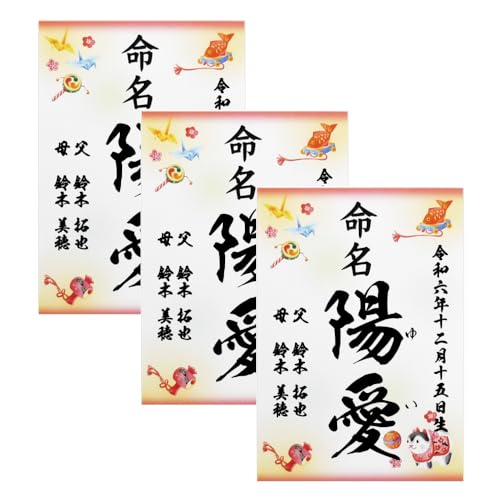 命名
陽愛
令和
父 鈴木 拓也
母 鈴木 美穂
命名
陽愛
令
父 鈴木 拓也
母 鈴木 美穂
令和六年十二月十五日生
命名
陽愛
ゆい
父 鈴木 拓也
母 鈴木 美穂